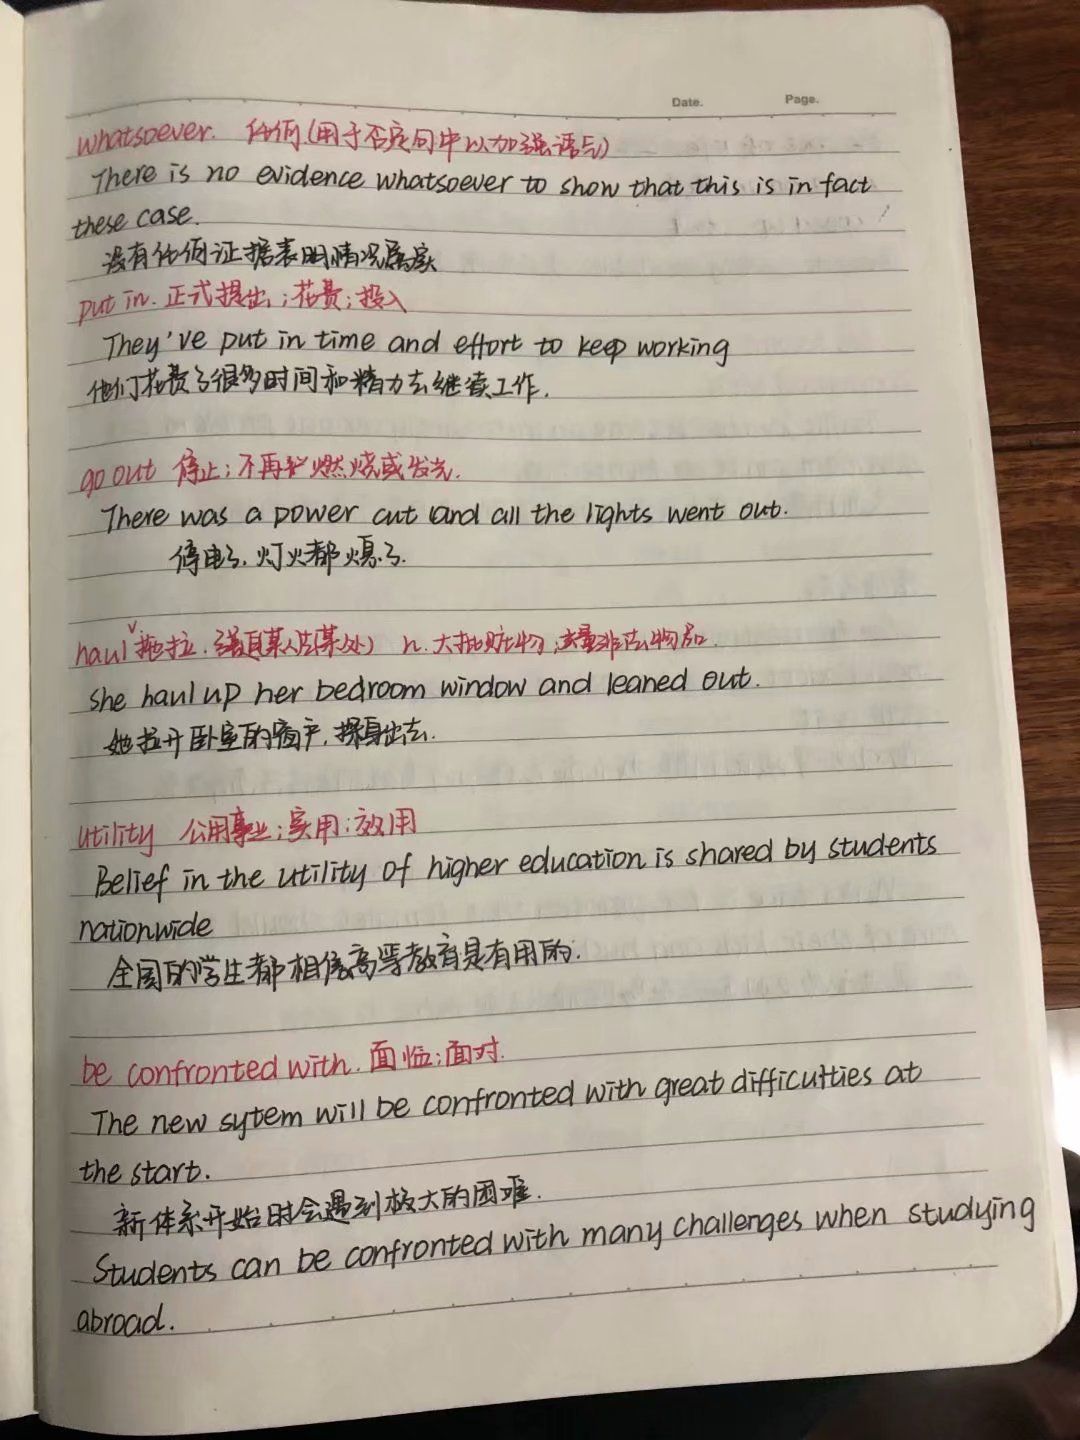 Date. Page.
whatsoever. 任何(用于否定句中以加强语气)
There is no evidence whatsoever to show that this is in fact
these case.
没有任何证据表明情况属实
put in. 正式提出;花费;投入
They've put in time and effort to keep working
他们花费了很多时间和精力去继续工作.
go out 停止;不再 燃烧或发光.
There was a power cut and all the lights went out.
停电了.灯火都熄了.
haul v 拖拉. 强迫某人去(某处) n. 大批赃物;大量非法物品
she haul up her bedroom window and leaned out.
她拉开卧室的窗户,探身出去.
utility 公用事业;实用;效用
Belief in the utility of higher education is shared by students
nationwide
全国的学生都相信高等教育是有用的.
be confronted with. 面临;面对.
The new sytem will be confronted with great difficulties at
the start.
新体系开始时会遇到极大的困难.
Students can be confronted with many challenges when studying
abroad.